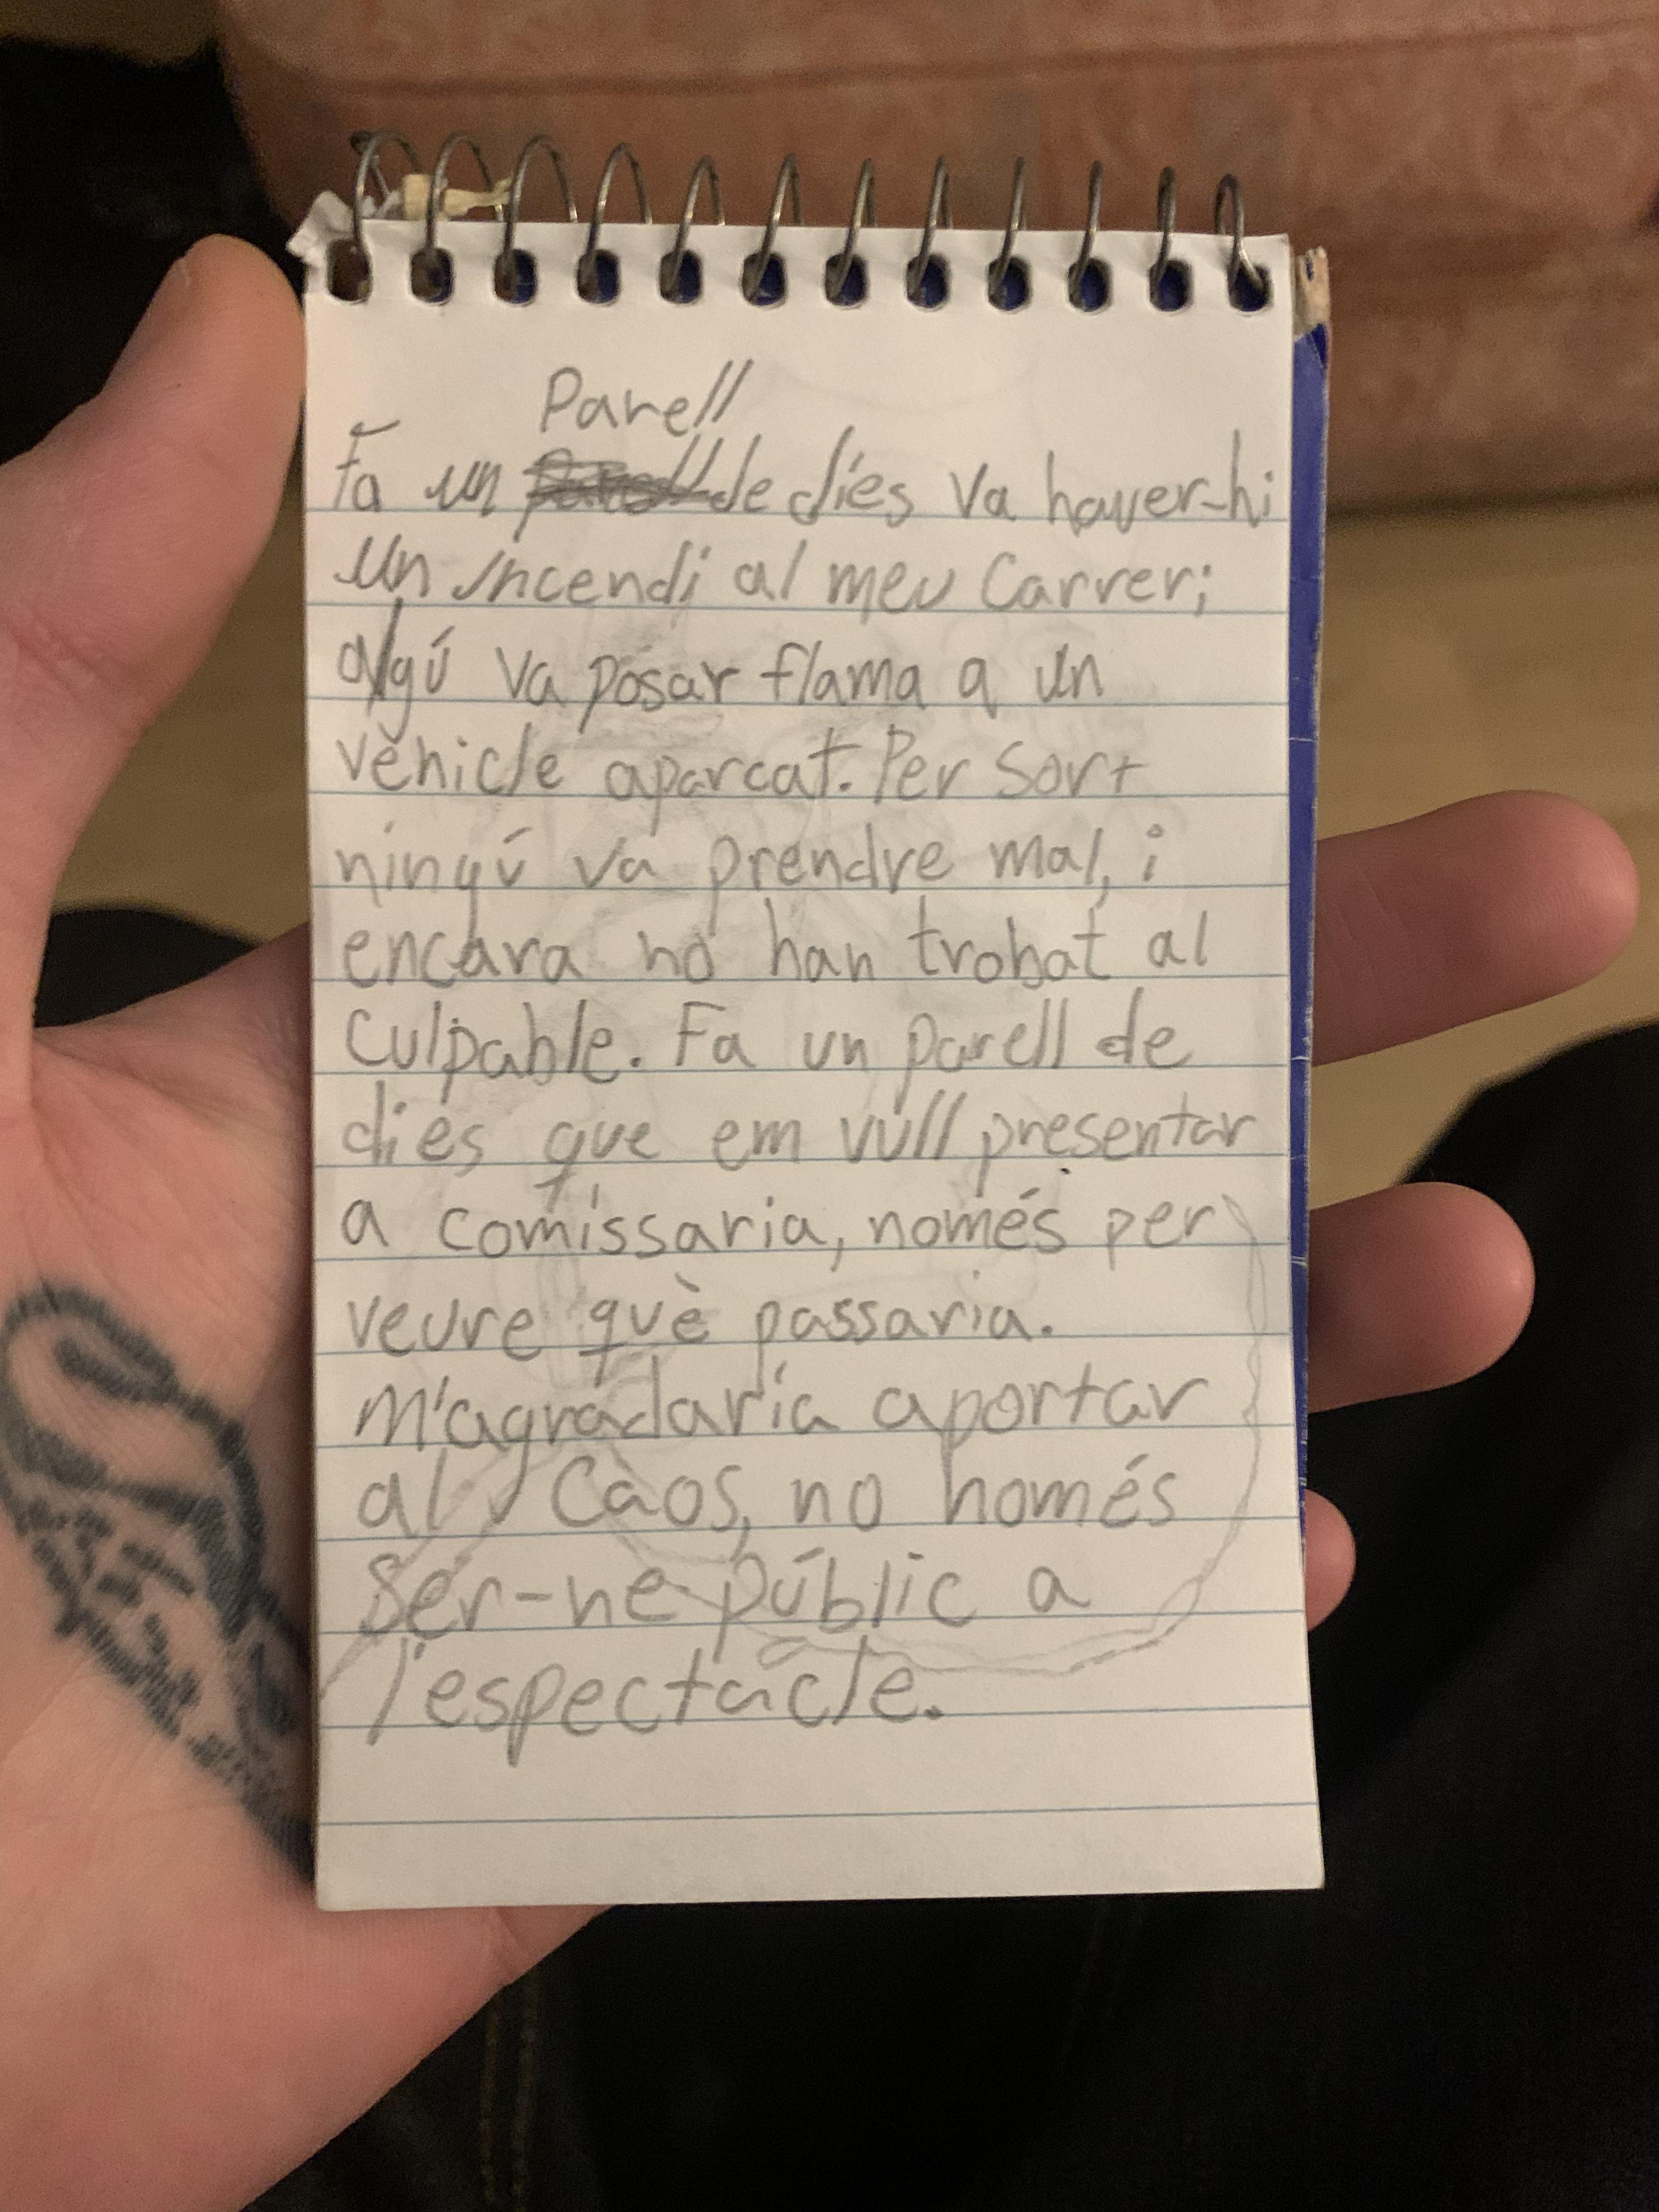 Parell
Fa un parell de dies va haver-hi
un incendi al meu carrer;
algú va posar flama a un
vehicle aparcat. Per sort
ningú va prendre mal, i
encara no han trobat al
culpable. Fa un parell de
dies que em vull presentar
a comissaria, només per
veure què passaria.
M'agradaria aportar
al caos, no només
ser-ne públic a
l'espectácle.